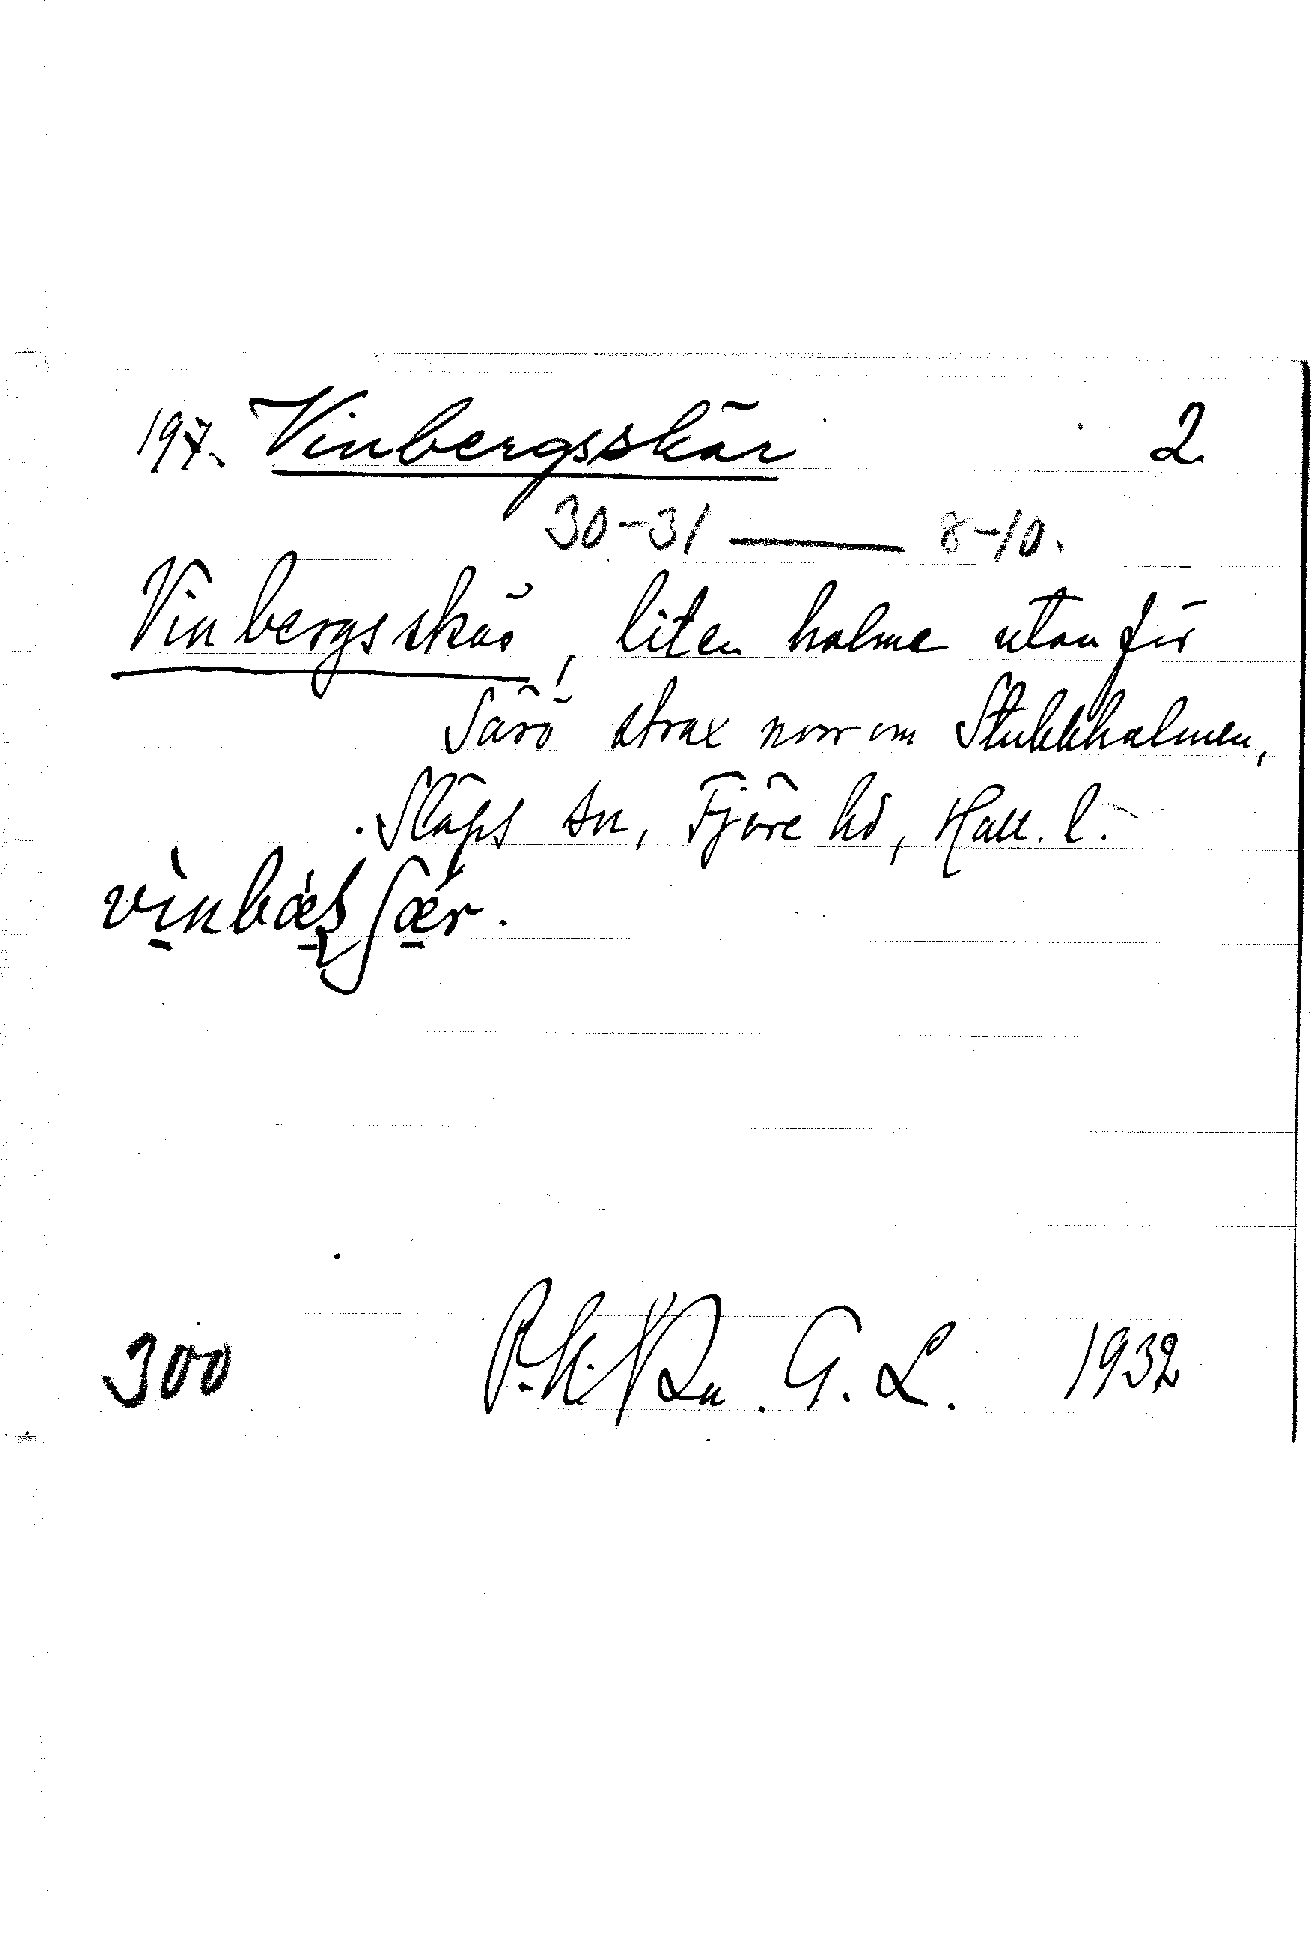 197. Vinbergsskär 2.
30-31 — 8-10.
Vinbergsskär, liten holme utanför
Särö strax norr om Stukkholmen,
Släps sn, Fjäre hd, Hall. l.
300 G. L. 1932